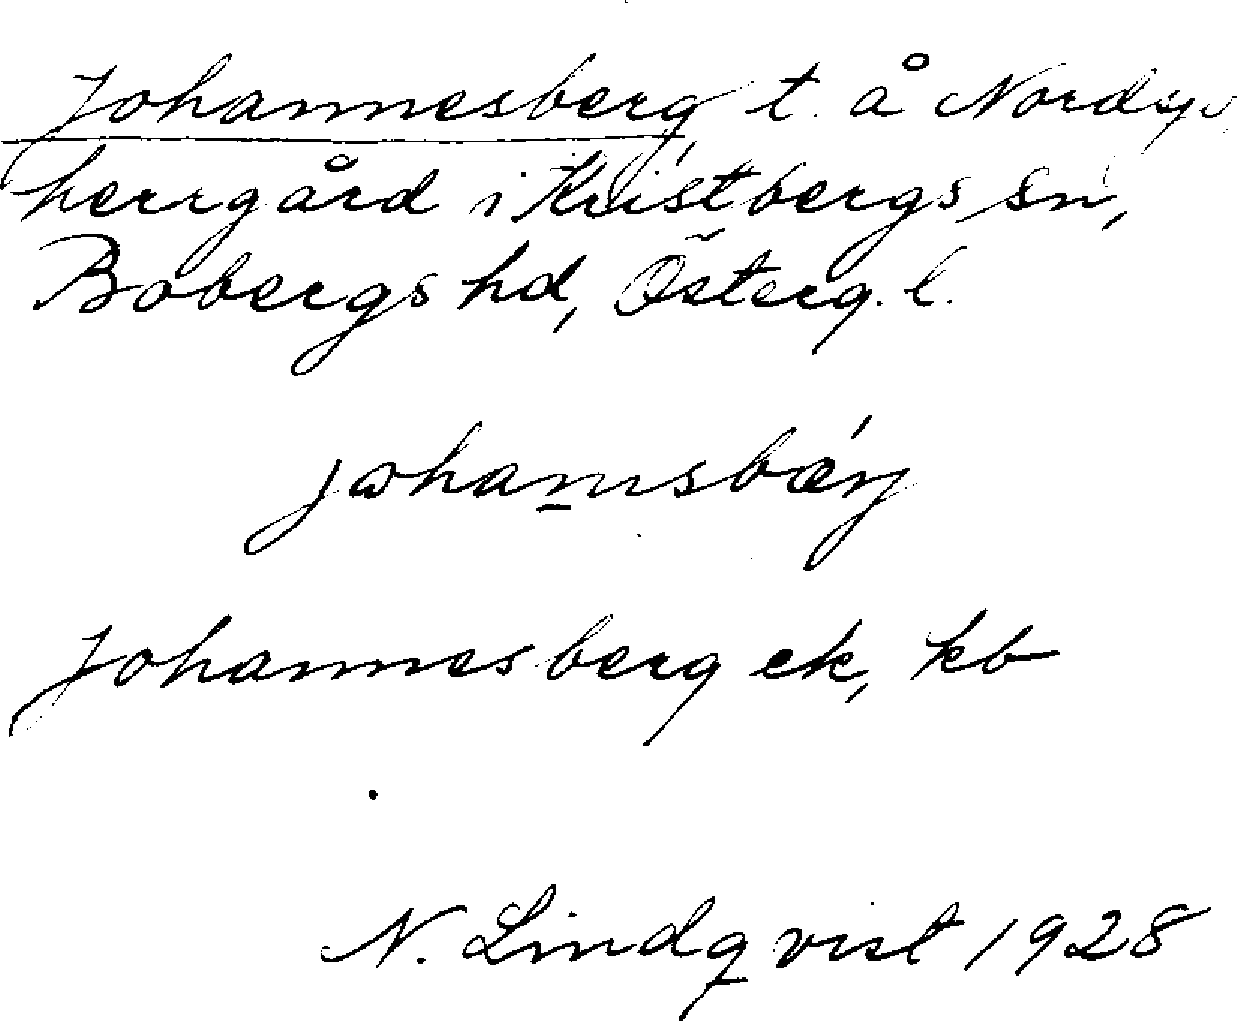 Johannesberg t. å Nordgu
herrgård i Kristbergs sn,
Bobergs hd, Österg. l.
johan̲nsbærj
Johannesberg ek, kb
N. Lindqvist 1928